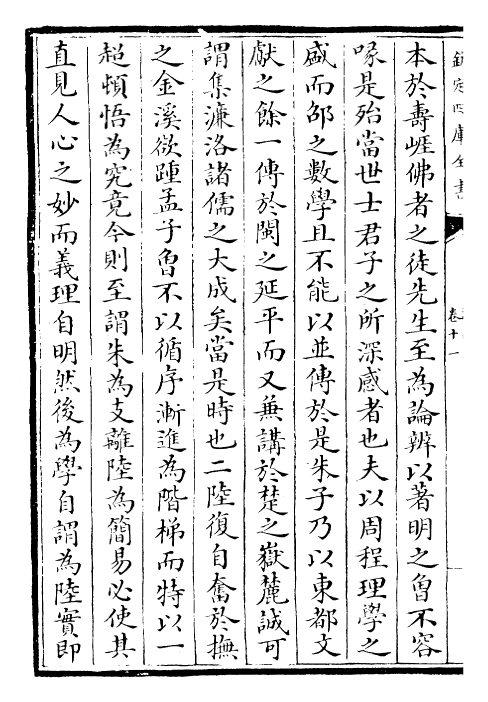 欽定四庫全書
卷十一
本於壽崖佛者之徒先生至為論辨以著明之曾不容
喙是殆當世士君子之所深感者也夫以周程理學之
盛而邵之數學且不能以並傳於是朱子乃以東都文
獻之餘一傳於閩之延平而又兼講於楚之嶽麓誠可
謂集濂洛諸儒之大成矣當是時也二陸復自奮於撫
之金溪欲踵孟子曾不以循序漸進為階梯而特以一
超頓悟為究竟今則至謂朱為支離陸為簡易必使其
直見人心之妙而義理自明然後為學自謂為陸實即